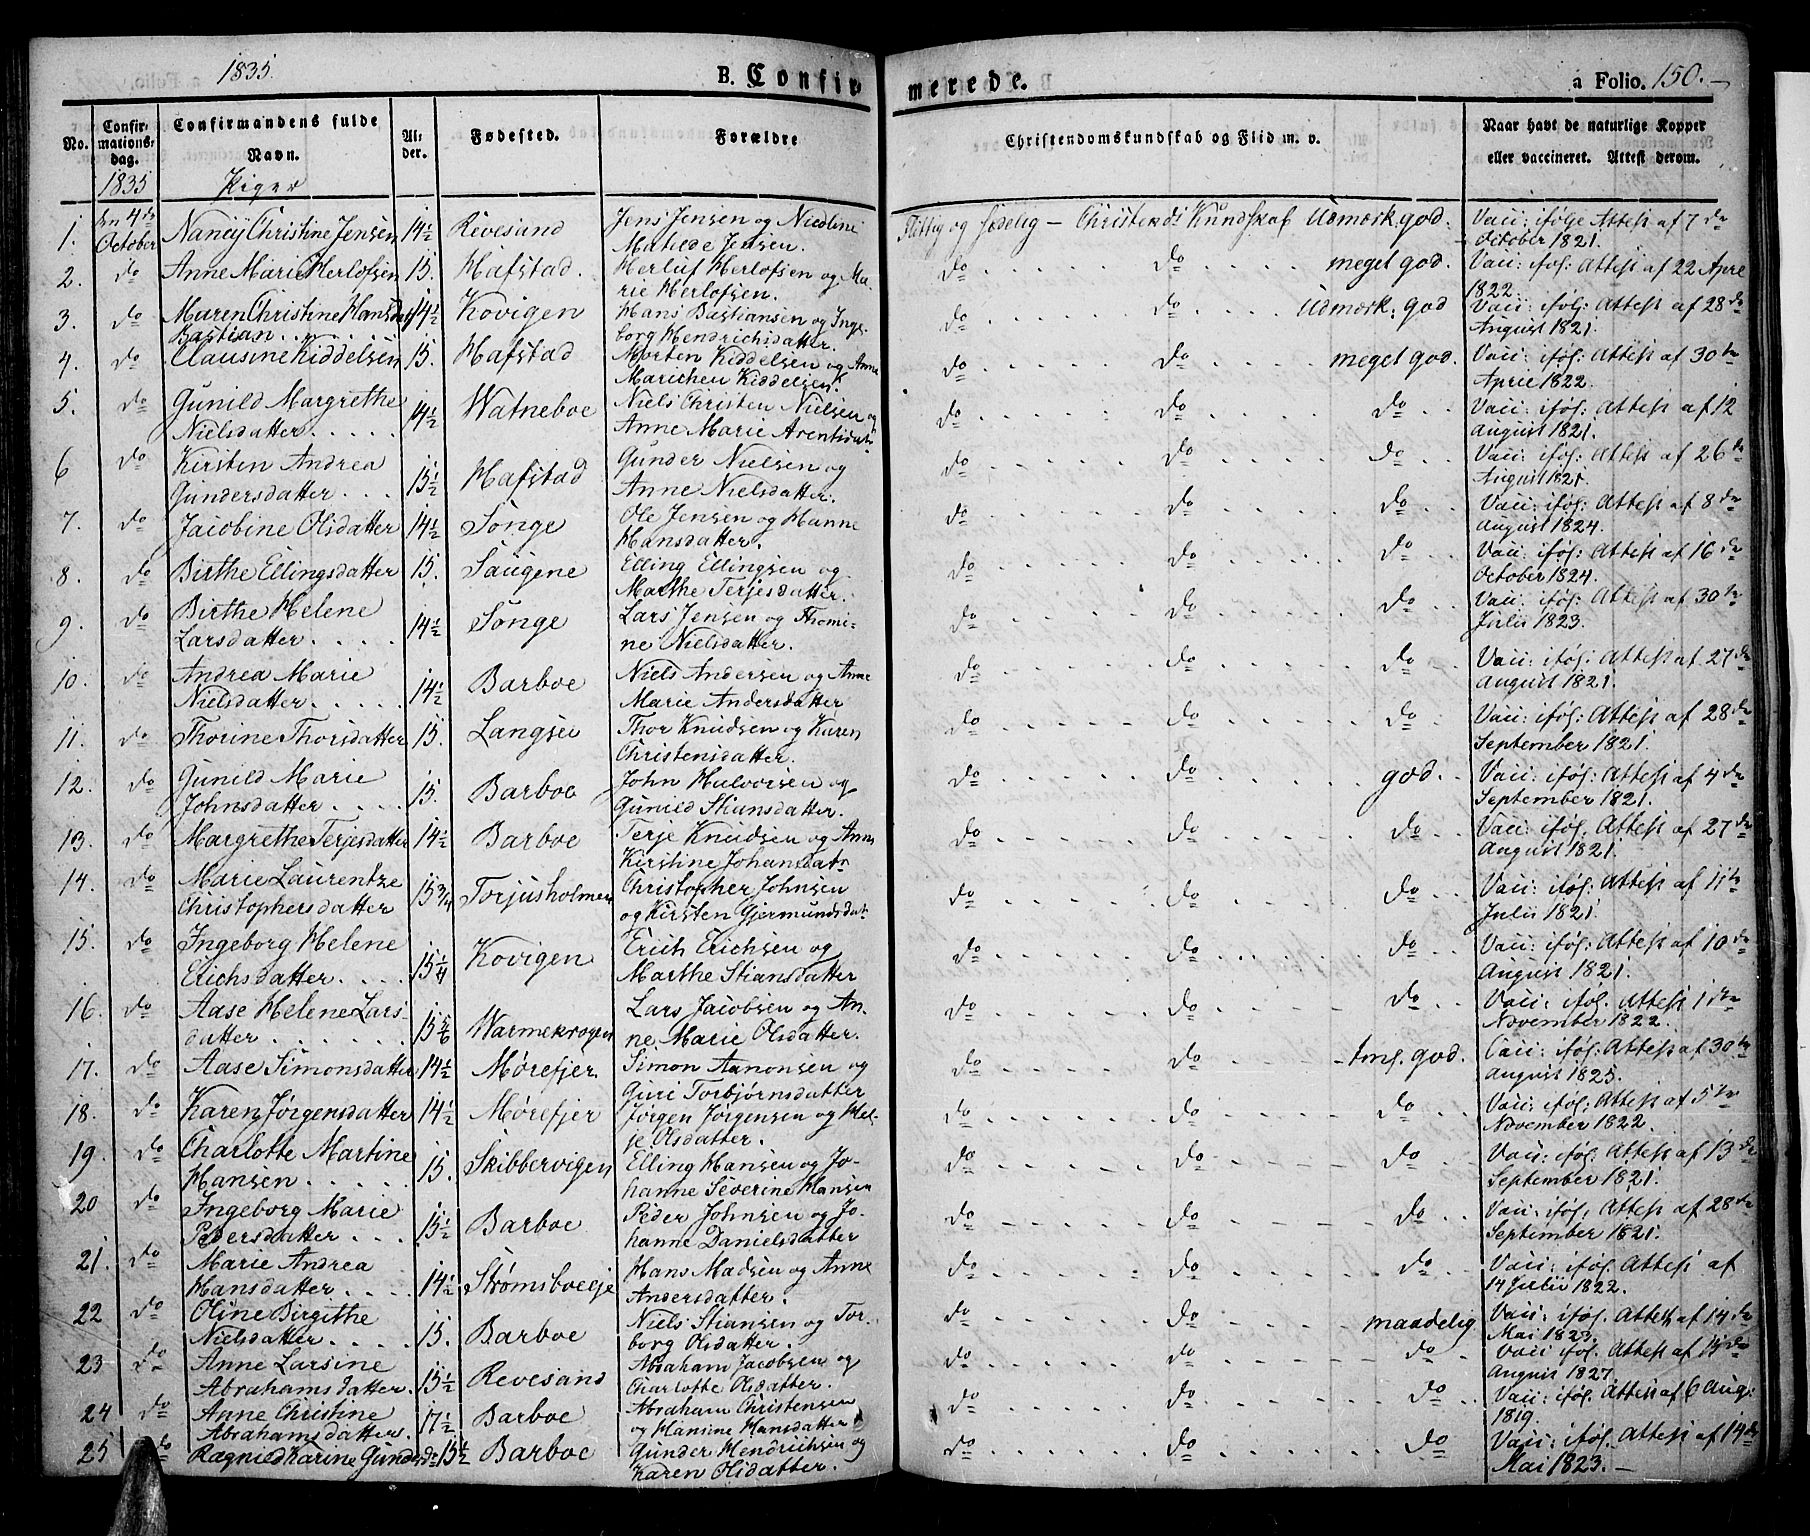 1835.
B. Confirmerede.
a Folio. 150.
No. Confirmationsdag. Confirmandens fulde Navn. Alder. Fødested. Forældre Christendomskundskab og Flid m. v. Naar havt de naturlige Kopper eller vaccineret. Attest derom.
1835 Piger
1. den 4de October Nancy Christine Jensen 14½ Revesand Jens Jensen og Nicoline Matilde Jensen. Flittig og sædelig – Christend: Kundskab Udmærk: god. Vacc: ifølge Attest af 7de October 1821.
2. do Anne Marie Herlofsen 15. Hafstad. Herluf Herlofsen og Marie Herlofsen. do do meget god. Vacc: iføl: Attest af 22 April 1822.
3. do Maren Christine Hansdatr Bastian 14½ Kovigen Hans Bastiansen og Ingeborg Hendrichsdatter. do do Udmærk: god Vacc: iføl: Attest af 28de August 1821.
4. do Clausine Kiddelsen 15. Hafstad Morten Kiddelsen og Anne Marichen Kiddelsen. do do meget god. Vacc: iføl: Attest af 30te April 1822.
5. do Gunild Margrethe Nielsdatter 14½ Watneboe Niels Christen Nielsen og Anne Marie Arentsdatr do do do Vacc: iføl: Attest af 12 August 1821.
6 do Kirsten Andrea Gundersdatter 15½ Hafstad Gunder Nielsen og Anne Nielsdatter. do do do Vacc: iføl: Attest af 26de August 1821.
7. do Jacobine Olsdatter 14½ Songe Ole Jensen og Hanne Hansdatter. do do do Vacc: iføl: Attest af 8de August 1824.
8. do Birthe Ellingsdatter 15. Saugene Elling Ellingsen og Marthe Terjesdatter. do do do Vacc: iføl: Attest af 16de October 1824.
9. do Birthe Helene Larsdatter 14½ Songe Lars Jensen og Thomine Nielsdatter. do do do Vacc: iføl: Attest af 30te Julii 1823.
10. do Andrea Marie Nielsdatter 14½ Barboe Niels Andersen og Anne Marie Andersdatter do do do Vacc: iføl: Attest af 27de August 1821.
11. do Thorine Thorsdatter 15. Langsee Thor Knudsen og Karen Christensdatter. do do do Vacc: iføl: Attest af 28de September 1821.
12. do Gunild Marie Johnsdatter 15. Barboe John Halvorsen og Gunild Stiansdatter. do do god. Vacc: iføl: Attest af 4de September 1821.
13. do Margrethe Terjesdatter 14½ Barboe Terje Knudsen og Anne Kirstine Johansdatr do do do Vacc: iføl: Attest af 27de August 1821.
14. do Marie Laurentze Christophersdatter 15 3/4 Torjusholmen Christopher Johnsen og Kirsten Gjermundsdat: do do do Vacc: iføl: Attest af 11te Julii 1821.
15. do Ingeborg Helene Erichsdatter 15¼ Kovigen Erich Erichsen og Marthe Stiansdatter do do do Vacc: iføl: Attest af 10de August 1821.
16. do Aase Helene Larsdatter 15 5/6 Warmekrogen Lars Jacobsen og Anne Marie Olsdatter. do do do Vacc: iføl. Attest af 1ste November 1822.
17. do Aase Simonsdatter 14½ Mørefjer. Simon Aanonsen og Guri Torbjørnsdatter do do temel. god. Vacc: iføl: Attest af 30te August 1825.
18. do Karen Jørgensdatter 14½ Mørefjer Jørgen Jørgensen og Helje Olsdatter. do do do Vacc: iføl: Attest af 5te November 1822.
19. do Charlotte Martine Hansen 15. Skibbervigen Elling Hansen og Johanne Severine Hansen do do do Vacc: iføl: Attest af 13de September 1821.
20 do Ingeborg Marie Pedersdatter 15½ Barboe Peder Johnsen og Johanne Danielsdatter do do do Vacc: iføl. Attest af 28de September 1821.
21. do Marie Andrea Hansdatter 14½ Strømsboelje Hans Madsen og Anne Andersdatter. do do do Vacc: iføl: Attest af 14 Julii 1822.
22 do Oline Birgithe Nielsdatter 15. Barboe Niels Stiansen og Torborg Olsdatter. do do maadelig Vacc: iføl. Attest af 14de Mai 1823.
23 do Anne Larsine Abrahamsdatter. 15½ Revesand Abraham Jacobsen og Charlotte Olsdatter. do do do Vacc: iføl. Attest af 14de August 1827.
24 do Anne Christine Abrahamsdatter. 17½ Barboe Abraham Christensen og Hansine Hansdatter do do do Vacc: iføl. Attest af 6 Aug: 1819.
25 do Ragnild Karine Gundersd: 15½ Barboe Gunder Hendrichsen og Karen Olsdatter. do do do Vacc: iføl. Attest af 14de Mai 1823.